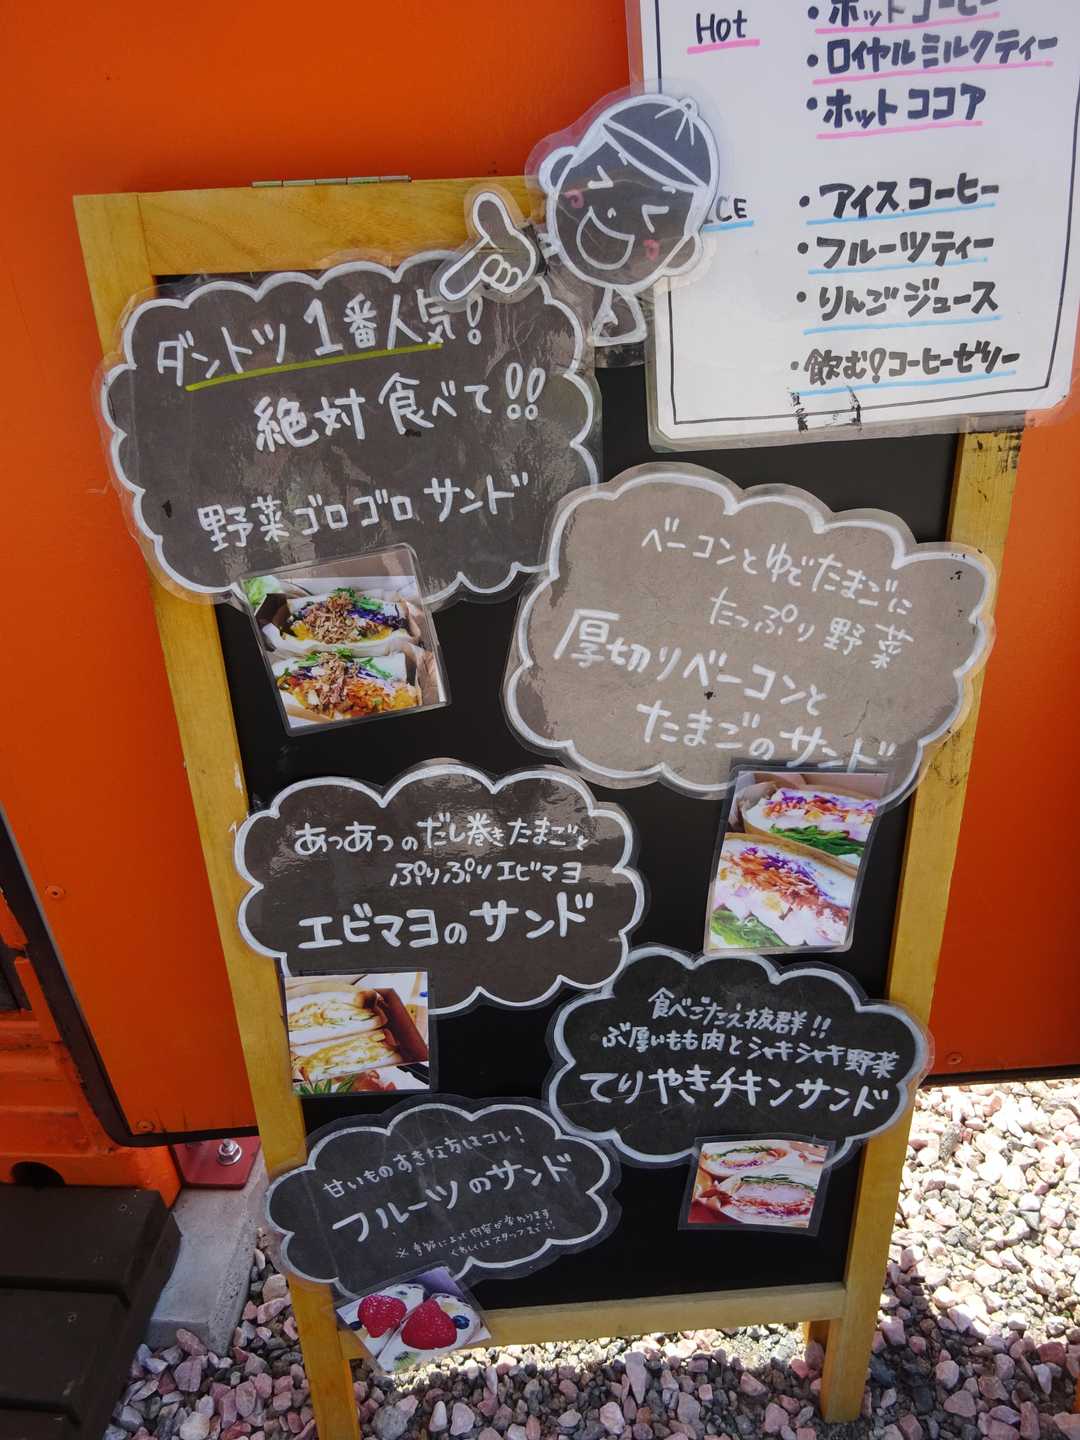 Hot
・ホットコーヒー
・ロイヤルミルクティー
・ホットココア
ICE
・アイスコーヒー
・フルーツティー
・りんごジュース
・飲む!コーヒーゼリー
ダントツ1番人気!
絶対食べて!!
野菜ゴロゴロサンド
ベーコンとゆでたまごに
たっぷり野菜
厚切りベーコンと
たまごのサンド
あつあつのだし巻きたまごと
ぷりぷりエビマヨ
エビマヨのサンド
食べごたえ抜群!!
ぶ厚いもも肉とシャキシャキ野菜
てりやきチキンサンド
甘いものすきな方はコレ!
フルーツのサンド
※季節によって内容が変わります
くわしくはスタッフまで!!